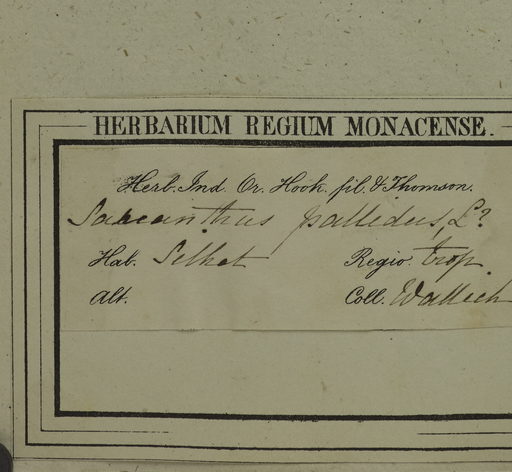 HERBARIUM REGIUM MONACENSE.
Herb. Ind. Or. Hook. fil. & Thomson.
Sarcanthus pallidus, L?
Hab. Silhet Regio. trop.
Alt. Coll. Wallich